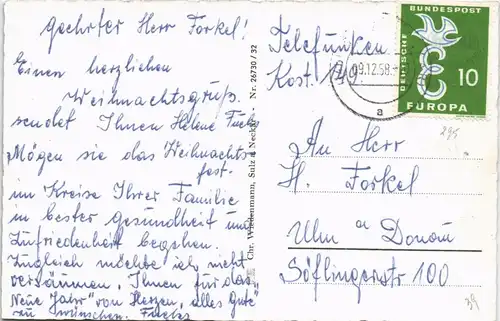 Geehrter Herr Forkel!
Einen herzlichen
Weihnachtsgruß
sendet Ihnen Helene Fuchs
„Mögen sie das Weihnachts
fest.
im Kreise Ihrer Familie
in bester gesundheit und
Zufriedenheit begehen.
Zugleich möchte ich nicht
versäumen, Ihnen für das
Neue Jahr" von Herzen, alles Gute
zu wünschen. Fuchs
Chr. Wiedenmann, Sulz a Neckar Nr. 26730/32
Telefunken
Kost. 140
09.12.58
a
DEUTSCHE
BUNDESPOST
10
EUROPA
295
An Herr
H. Forkel
Ulm a Donau
Söflingerstr 100